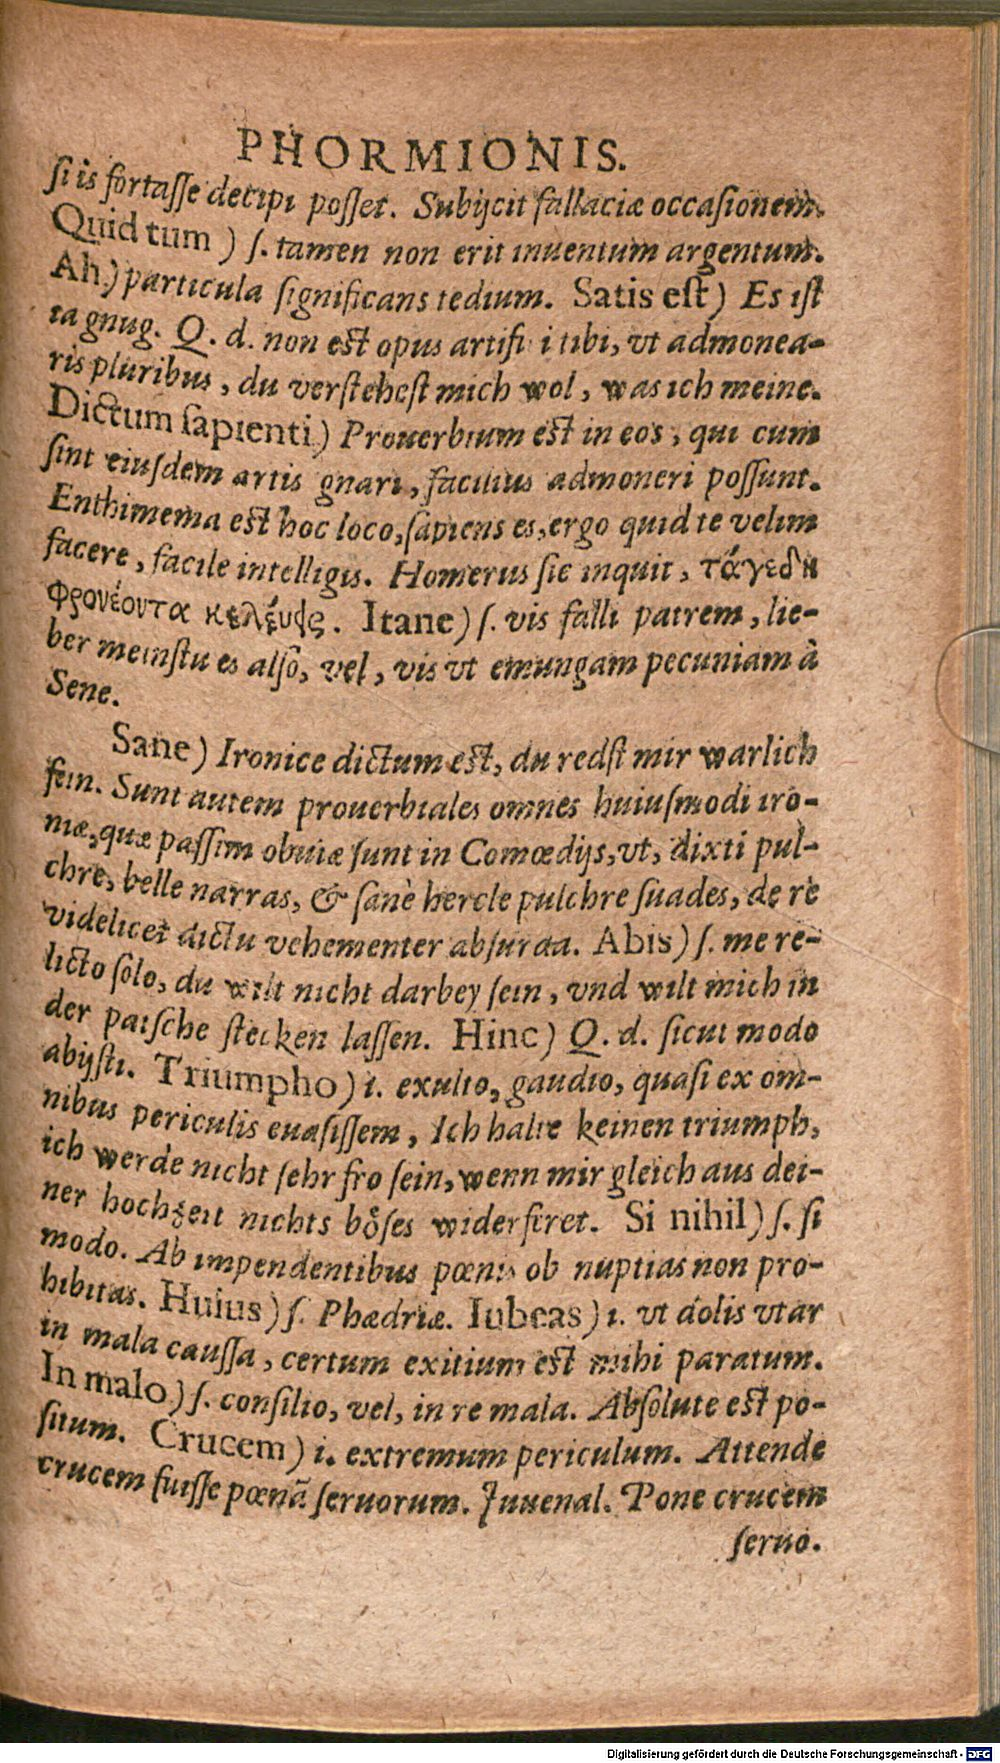 PHORMIONIS.
ſi is fortaſſe decipi poſſet. Subijcit fallaciæ occaſionem.
Quid tum ) ſ. tamen non erit inuentum argentum.
Ah.) particula ſignificans tedium. Satis eſt) Es iſt
ta gnug. Q. d. non eſt opus artifi i tibi, vt admonea-
ris pluribus, du verſteheſt mich wol, was ich meine.
Dictum ſapienti) Prouerbium eſt in eos, qui cum
ſint eiuſdem artis gnari, facilius admoneri poſſunt.
Enthimema eſt hoc loco, ſapiens es, ergo quid te velim
facere, facile intelligis. Homerus ſic inquit, τάγεδη
Φρονέοντα κελέυϛς. Itane) ſ. vis falli patrem, lie-
ber meinſtu es alſo, vel, vis vt emungam pecuniam à
Sene.
Sane) Ironice dictum eſt, du redſt mir warlich
fein. Sunt autem prouerbiales omnes huiuſmodi iro-
niæ, quæ paſſim obuiæ ſunt in Comœdijs, vt, dixti pul-
chre, belle narras, & ſanè hercle pulchre ſuades, de re
videlicet dictu vehementer abſurda. Abis) ſ. me re-
licto ſolo, du wilt nicht darbey ſein, vnd wilt mich in
der patſche ſtecken laſſen. Hinc) Q. d. ſicut modo
abijſti. Triumpho) i. exulto, gaudio, quaſi ex om-
nibus periculis euaſiſſem, Ich halte keinen triumph,
ich werde nicht ſehr fro ſein, wenn mir gleich aus dei-
ner hochzeit nichts böſes widerfiret. Si nihil) ſ. ſi
modo. Ab impendentibus pœnis ob nuptias non pro-
hibitas. Huius) ſ. Phædriæ. Iubeas) i. vt dolis vtar
in mala cauſſa, certum exitium eſt mihi paratum.
In malo) ſ. conſilio, vel, in re mala. Abſolute eſt po-
ſitum. Crucem) i. extremum periculum. Attende
crucem fuiſſe pœnã ſeruorum. Juuenal. Pone crucem
ſeruo.
Digitalisierung gefördert durch die Deutsche Forschungsgemeinschaft - DFG